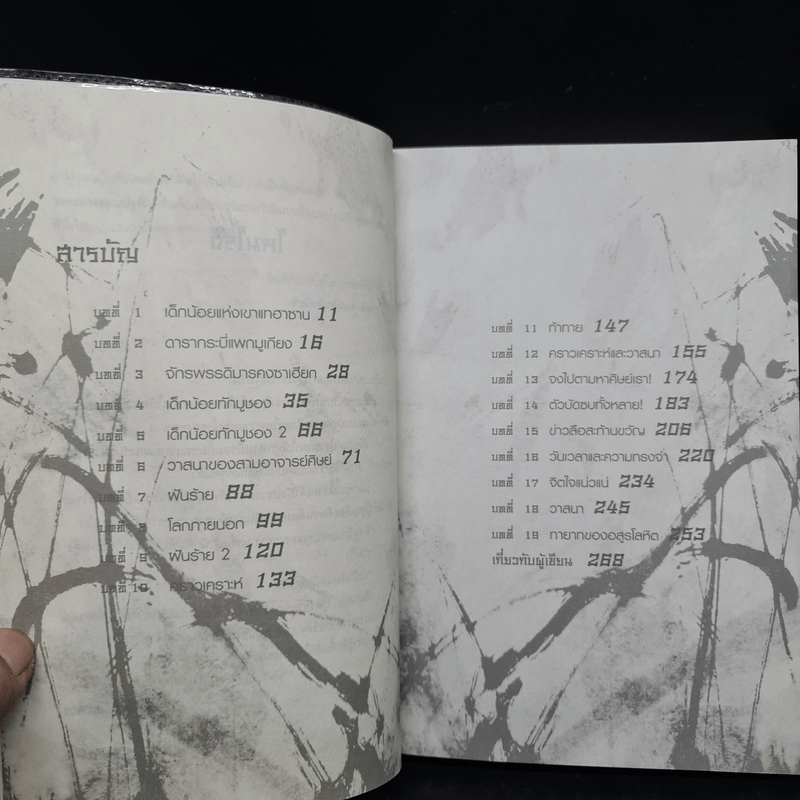 สารบัญ
บทที่ 1 เด็กน้อยแห่งเขาแทฮาซาน 11
บทที่ 2 ดารากระบี่แพกมูเกียง 16
บทที่ 3 จักรพรรดิมารคงซาเฮียก 28
บทที่ 4 เด็กน้อยทักมูซอง 35
บทที่ 5 เด็กน้อยทักมูซอง 2 66
บทที่ 6 วาสนาของสามอาจารย์ศิษย์ 71
บทที่ 7 ฝันร้าย 88
บทที่ 8 โลกภายนอก 99
บทที่ 9 ฝันร้าย 2 120
บทที่ 10 คราวเคราะห์ 133
บทที่ 11 ท้าทาย 147
บทที่ 12 คราวเคราะห์และวาสนา 155
บทที่ 13 จงไปตามหาศิษย์เรา! 174
บทที่ 14 ตัวบัดซบทั้งหลาย! 183
บทที่ 15 ข่าวลือสะท้านขวัญ 206
บทที่ 16 วันเวลาและความทรงจำ 220
บทที่ 17 จิตใจแน่วแน่ 234
บทที่ 18 วาสนา 245
บทที่ 19 ทายาทของอสูรโลหิต 253
เกี่ยวกับผู้เขียน 268